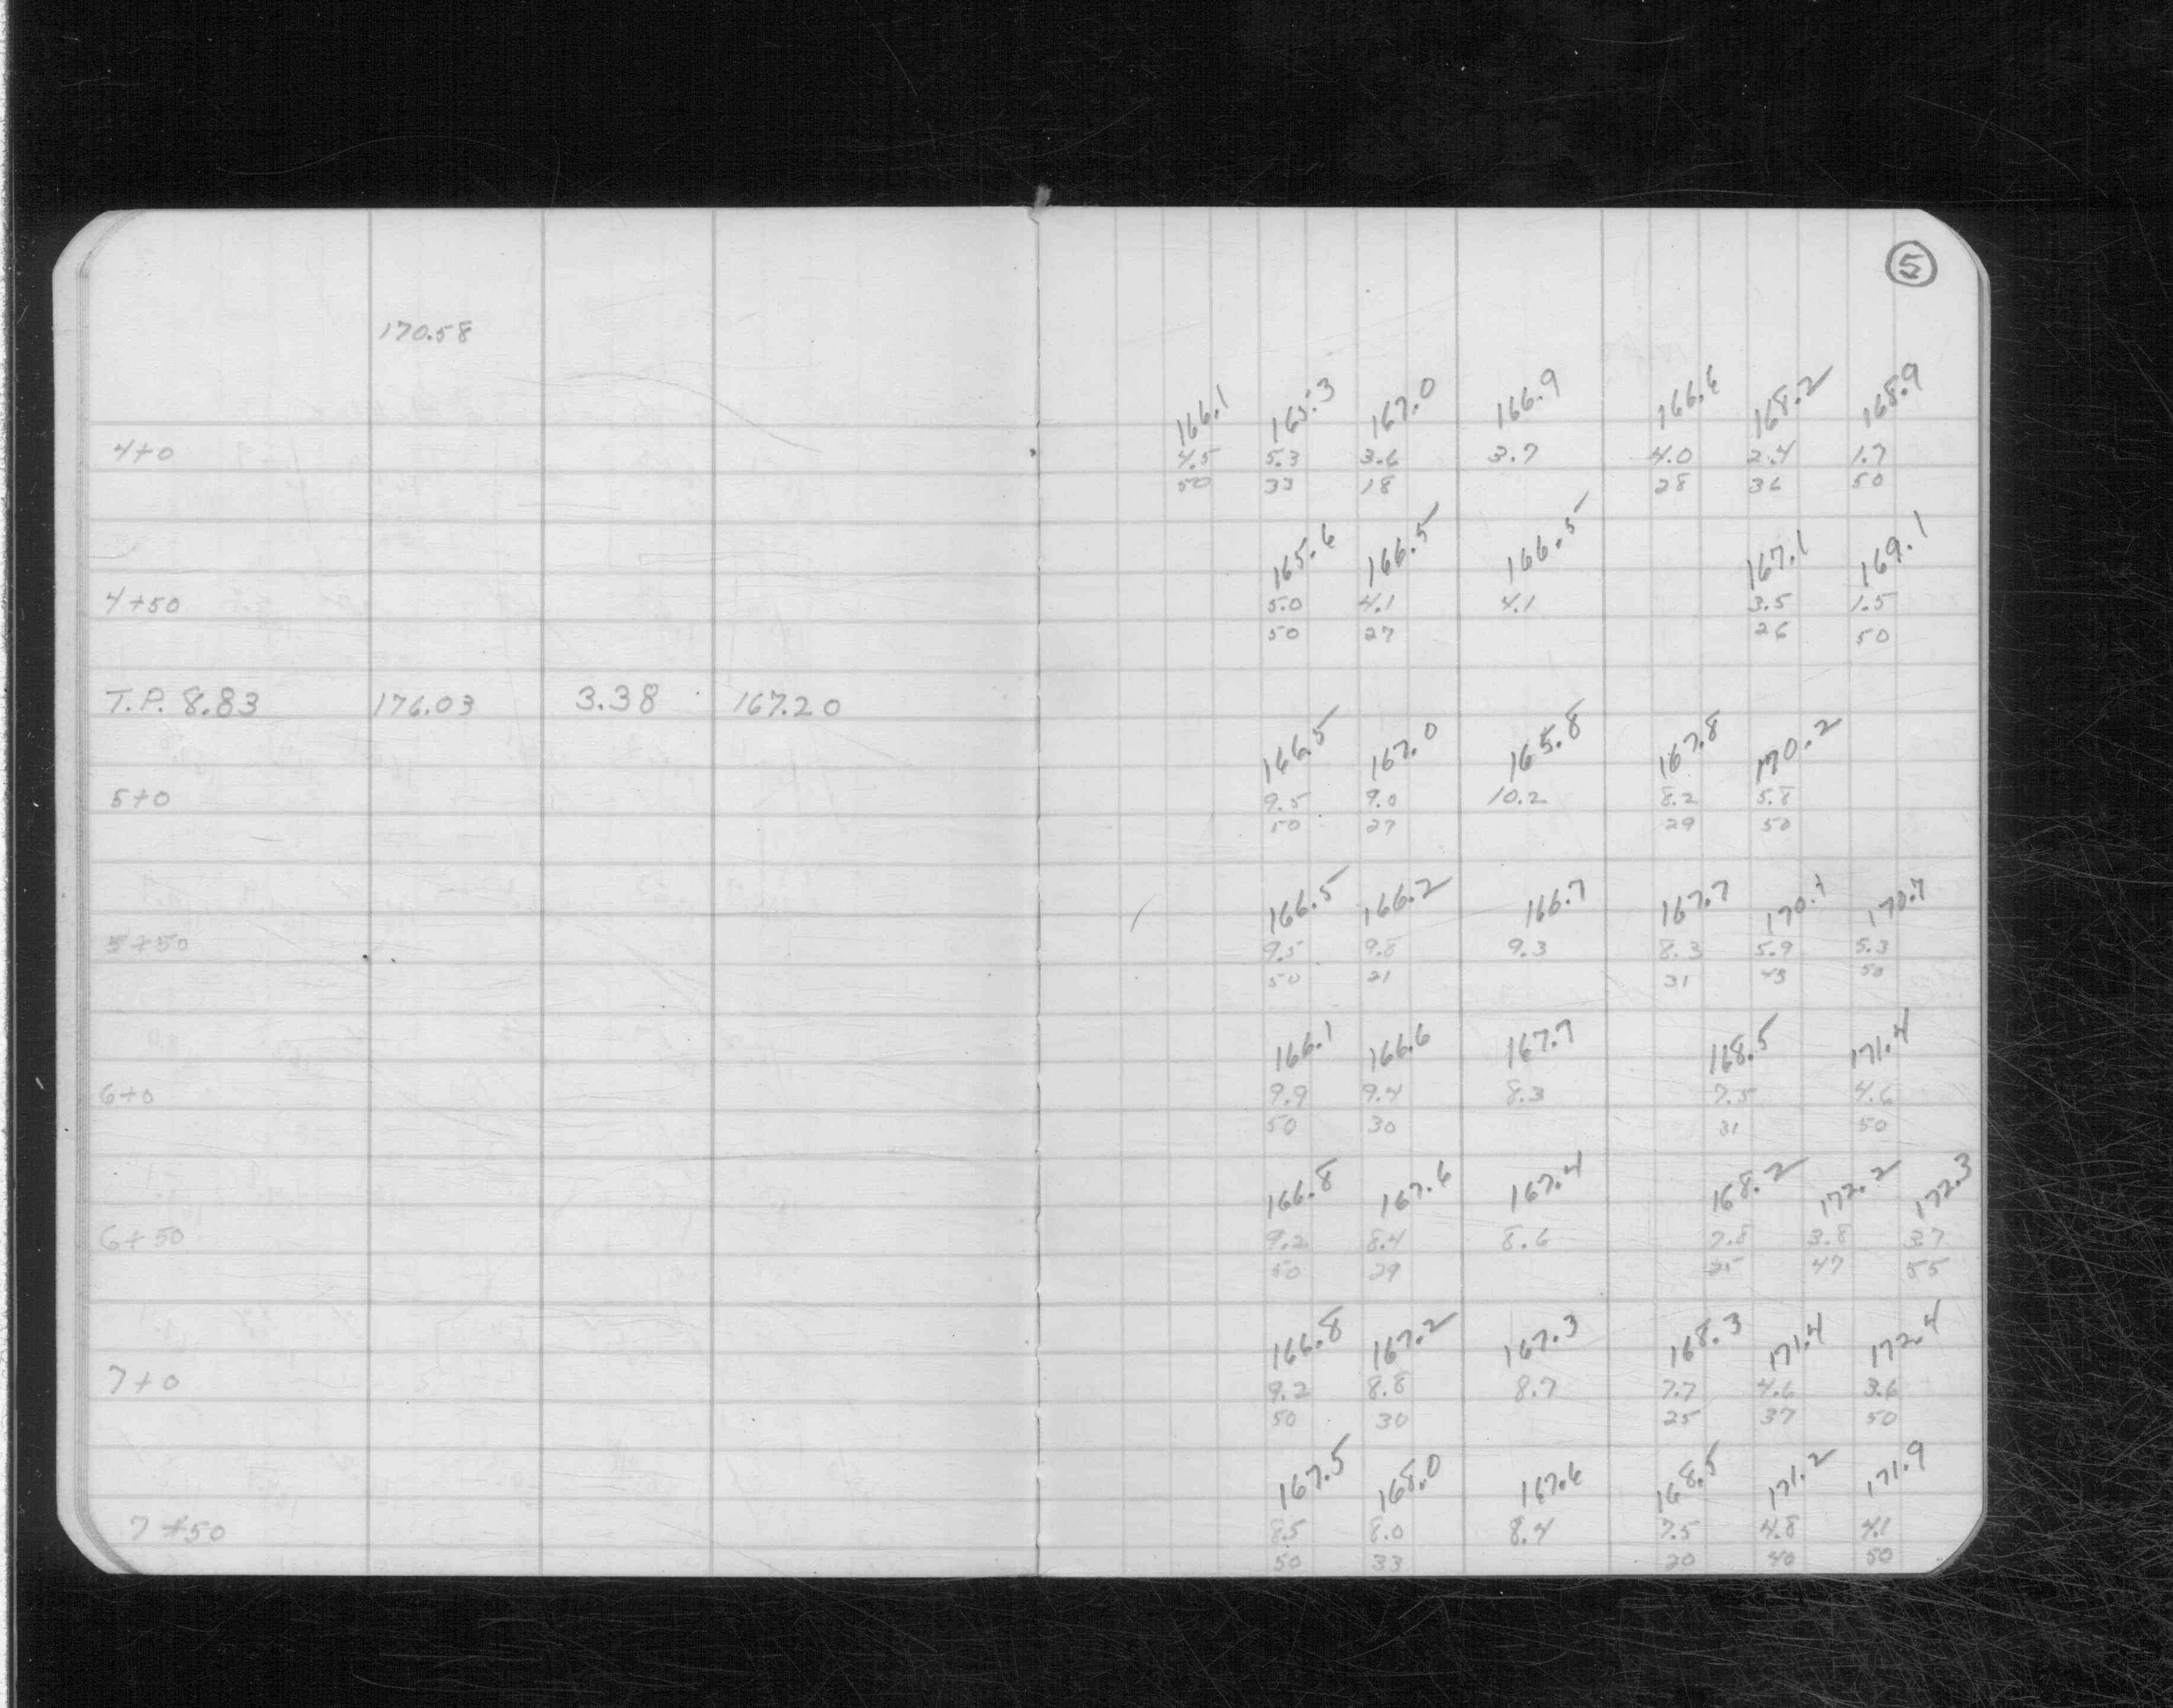 5
170.58
166.1 165.3 167.0 166.9 166.6 168.2 168.9
4+0 4.5 5.3 3.6 3.7 4.0 2.4 1.7
50 33 18 28 36 50
165.6 166.5 166.5 167.1 169.1
4+50 5.0 4.1 4.1 3.5 1.5
50 27 26 50
T.P. 8.83 176.03 3.38 167.20
166.5 167.0 165.8 167.8 170.2
5+0 9.5 9.0 10.2 8.2 5.8
50 27 29 50
166.5 166.2 166.7 167.7 170.1 170.7
5+50 9.5 9.8 9.3 8.3 5.9 5.3
50 21 31 43 50
166.1 166.6 167.7 168.5 171.4
6+0 9.9 9.4 8.3 7.5 4.6
50 30 31 50
166.8 167.6 167.4 168.2 172.2 172.3
6+50 9.2 8.4 8.6 7.8 3.8 3.7
50 29 25 47 55
166.8 167.2 167.3 168.3 171.4 172.4
7+0 9.2 8.8 8.7 7.7 4.6 3.6
50 30 25 37 50
167.5 168.0 167.6 168.5 171.2 171.9
7+50 8.5 8.0 8.4 7.5 4.8 4.1
50 33 20 40 50